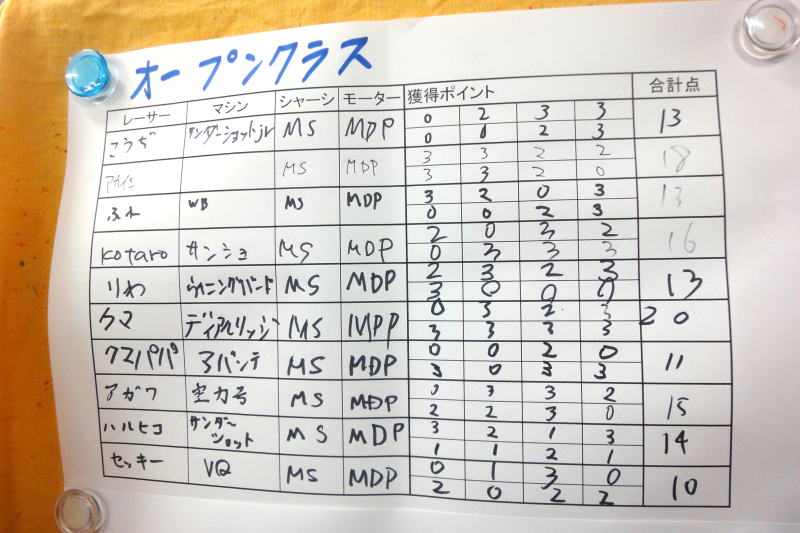 オープンクラス
レーサー マシン シャーシ モーター 獲得ポイント 合計点
こうぢ サンダーショットJr MS MDP 0 2 3 3 13
0 0 2 3
MS MDP 3 3 2 2 18
3 3 2 0
ふれ WB MS MDP 3 2 0 3 13
0 0 2 3
kotaro サンショ MS MDP 2 0 3 2 16
0 3 3 3
りわ ウイニングバード MS MDP 2 3 2 3 13
3 0 0 0
クマ ディアルリッジ MS MDP 0 3 2 3 20
3 3 3 3
クマパパ アバンテ MS MDP 0 0 2 0 11
3 0 3 3
アガワ 空力号 MS MDP 0 3 3 2 15
2 2 3 0
ハルヒコ サンダーショット MS MDP 3 2 1 3 14
1 1 2 1
セッキー VQ MS MDP 0 1 3 0 10
2 0 2 2